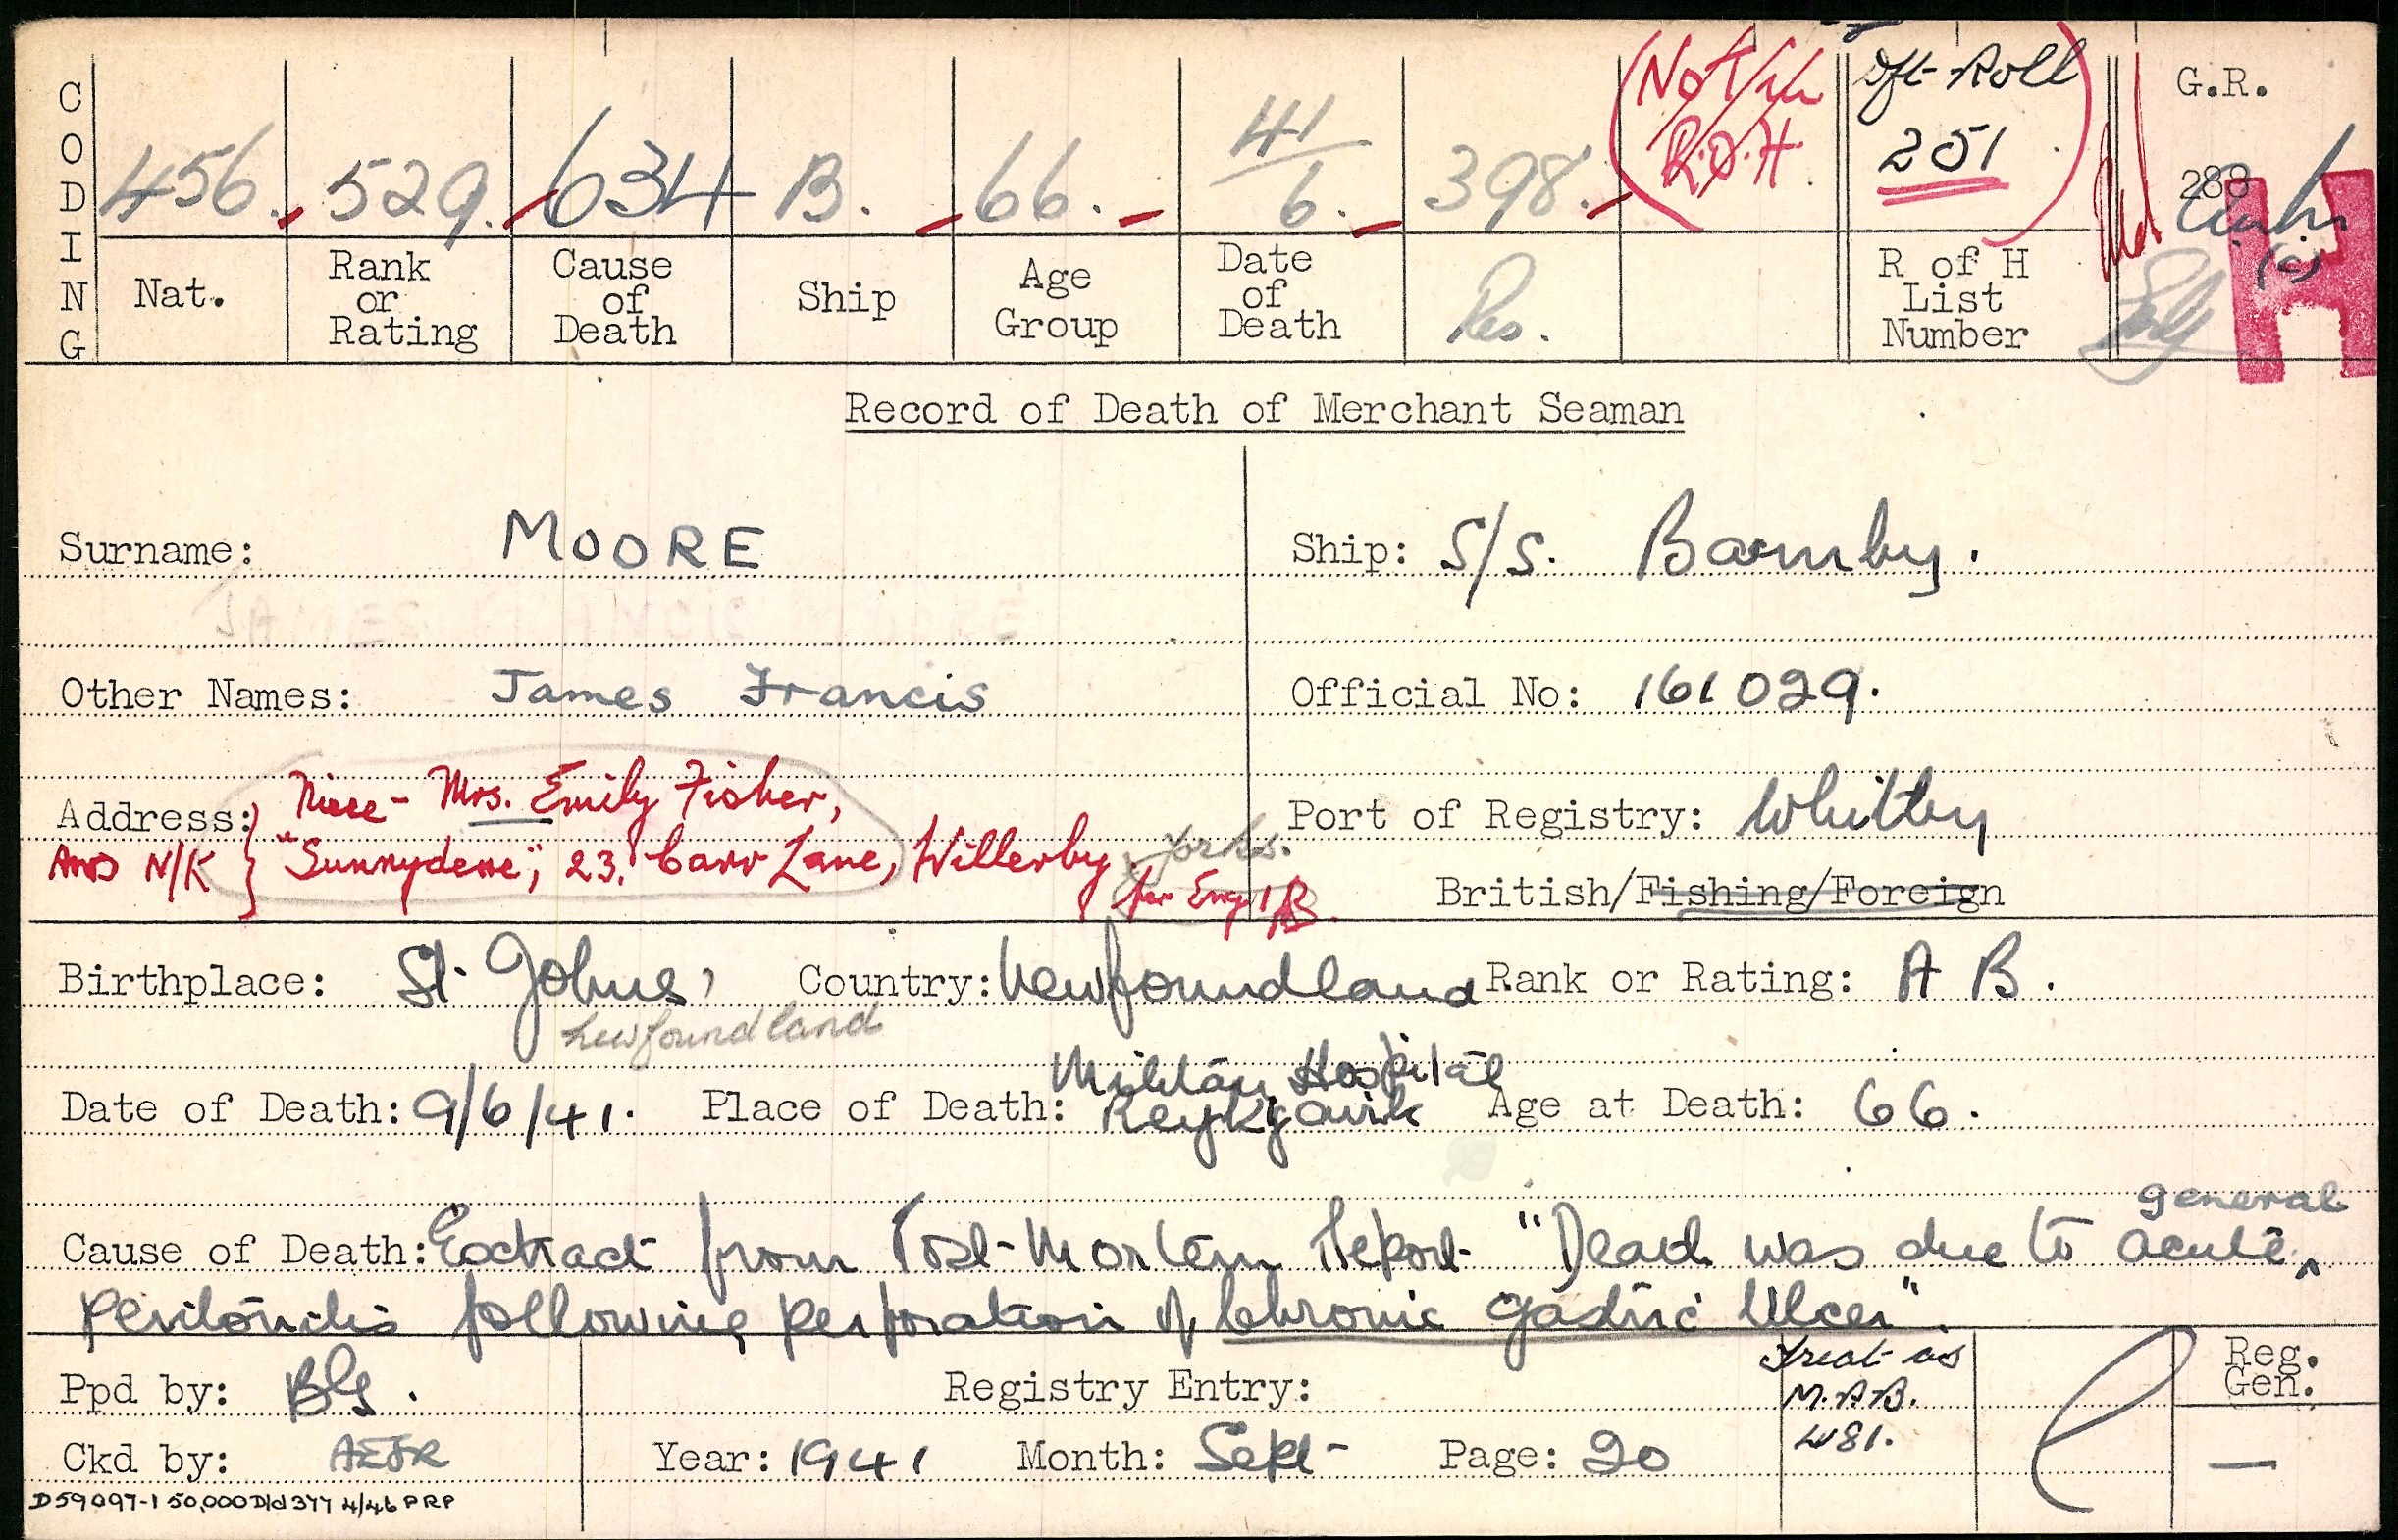 CODING
456. 529. 634 B. 66. 41/6. 398. (Not in R.O.H. Dft-Roll 251) G.R. 288
Nat. Rank or Rating Cause of Death Ship Age Group Date of Death Res. R of H List Number (c) H
Record of Death of Merchant Seaman
Surname: MOORE Ship: S/S. Barnby.
Other Names: James Francis Official No: 161029.
Address: Niece - Mrs. Emily Fisher, Port of Registry: Whitby
AND N/K } "Sunnydene", 23, Carr Lane, Willerby Yorks.
per Eng 1 B. British/Fishing/Foreign
Birthplace: St. Johns, Country: Newfoundland Rank or Rating: A B.
Newfoundland
Date of Death: 9/6/41. Place of Death: Military Hospital Reykjavik Age at Death: 66.
Cause of Death: Extract from Post-Mortem Report "Death was due to acute general
peritonitis following perforation of chronic gastric Ulcer".
Ppd by: BG. Registry Entry: Treat as M.A.B. 481. Reg. Gen.
Ckd by: AEJR Year: 1941 Month: Sept- Page: 20 —
D59097-1 50,000 D/d 377 4/46 PRP